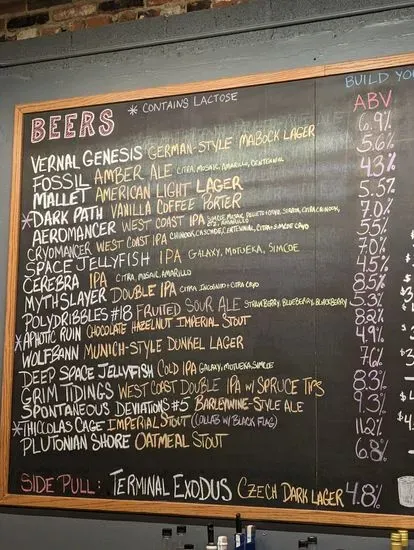 BUILD YOU
* CONTAINS LACTOSE
BEERS ABV
VERNAL GENESIS GERMAN-STYLE MAIBOCK LAGER 6.9%
FOSSIL AMBER ALE CITRA, MOSAIC, AMARILLO, CENTENNIAL 5.6%
MALLET AMERICAN LIGHT LAGER 4.3%
*DARK PATH VANILLA COFFEE PORTER 5.5%
AEROMANCER WEST COAST IPA 7.0%
CRYOMANCER WEST COAST IPA CHINOOK, CASCADE, CENTENNIAL, CITRA + SIMCOE CRYO 5.5%
SPACE JELLYFISH IPA GALAXY, MOTUEKA, SIMCOE 7.0%
CEREBRA IPA CITRA, MOSAIC, AMARILLO 4.5%
MYTHSLAYER DOUBLE IPA CITRA, INCOGNITO + CITRA CRYO 8.5%
POLYDRIBBLES #18 FRUITED SOUR ALE STRAWBERRY, BLUEBERRY, BLACKBERRY 5.3%
*APHOTIC RUIN CHOCOLATE HAZELNUT IMPERIAL STOUT 8.2%
WOLFBANN MUNICH-STYLE DUNKEL LAGER 4.9%
DEEP SPACE JELLYFISH COLD IPA GALAXY, MOTUEKA, SIMCOE 7.6%
GRIM TIDINGS WEST COAST DOUBLE IPA W/ SPRUCE TIPS 8.3%
SPONTANEOUS DEVIATIONS #5 BARLEYWINE-STYLE ALE 9.3%
*THICOLAS CAGE IMPERIAL STOUT (COLLAB W/ BLACK FLAG) 11.2%
PLUTONIAN SHORE OATMEAL STOUT 6.8%
SIDE PULL: TERMINAL EXODUS CZECH DARK LAGER 4.8%